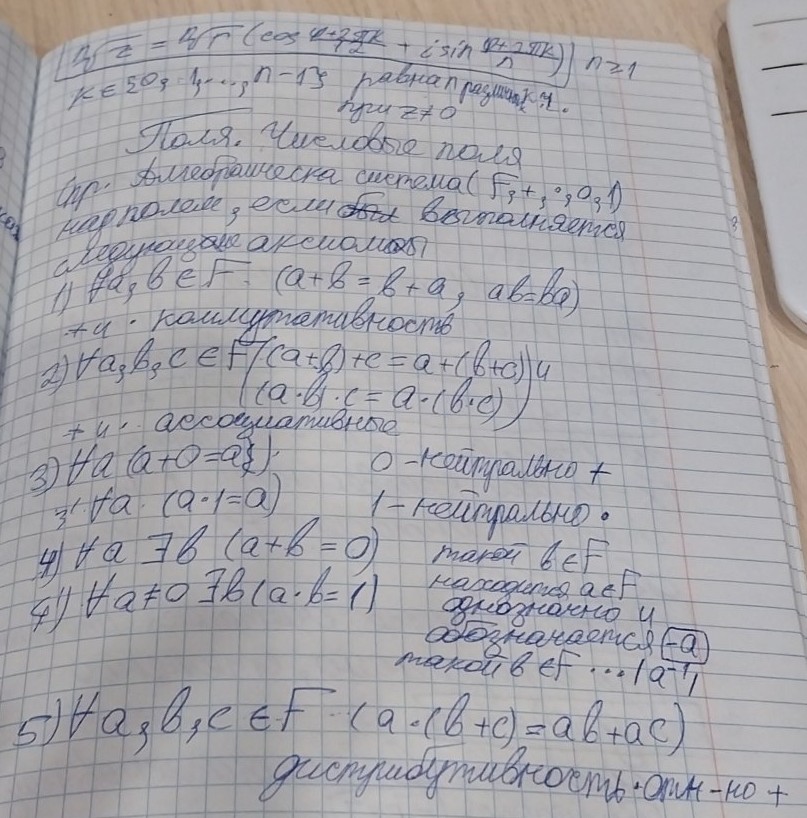 ⁿ√z = ⁿ√r (cos (φ+2πk)/n + i sin (φ+2πk)/n) n≥1
k ∈ {0, 1, ..., n-1} равна различ.
при z≠0
Поля. Числовые поля
Опр. Алгебраическа система (F, +, ·, 0, 1)
наз полем, если выполняется
следующие аксиомы
1) ∀a, b ∈ F. (a+b = b+a, ab=ba)
+ и · коммутативность
2) ∀a, b, c ∈ F ((a+b)+c = a+(b+c)) и
((a·b)·c = a·(b·c))
+ и · ассоциативные
3) ∀a (a+0=a). 0 - нейтрально +
3' ∀a. (a·1=a) 1 - нейтрально ·
4) ∀a ∃b (a+b=0) такой b∈F
находится a∈F
4') ∀a≠0 ∃b (a·b=1) однозначно и
обозначается -a
такой b∈F ... a⁻¹
5) ∀a, b, c ∈ F. (a·(b+c) = ab+ac)
дистрибутивность · отн-но +